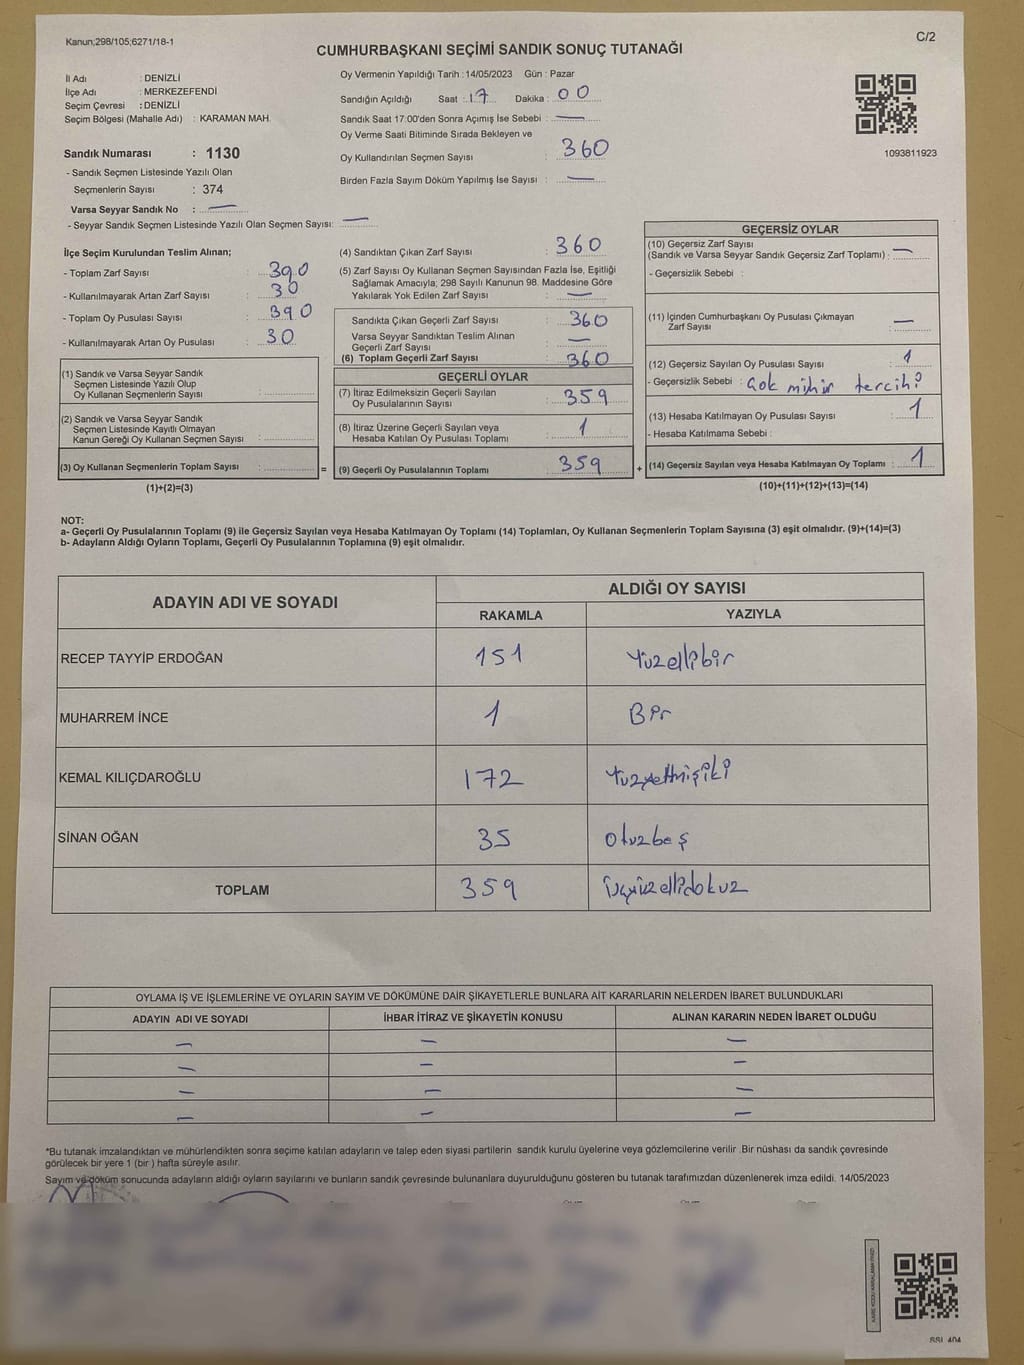 Kanun;298/105;6271/18-1
C/2
CUMHURBAŞKANI SEÇİMİ SANDIK SONUÇ TUTANAĞI
İl Adı : DENİZLİ
İlçe Adı : MERKEZEFENDİ
Seçim Çevresi : DENİZLİ
Seçim Bölgesi (Mahalle Adı) : KARAMAN MAH.
Sandık Numarası : 1130
- Sandık Seçmen Listesinde Yazılı Olan
Seçmenlerin Sayısı : 374
Varsa Seyyar Sandık No : —
- Seyyar Sandık Seçmen Listesinde Yazılı Olan Seçmen Sayısı: —
Oy Vermenin Yapıldığı Tarih : 14/05/2023 Gün : Pazar
Sandığın Açıldığı Saat : 17 Dakika : 00
Sandık Saat 17:00'den Sonra Açımış İse Sebebi : —
Oy Verme Saati Bitiminde Sırada Bekleyen ve
Oy Kullandırılan Seçmen Sayısı : 360
Birden Fazla Sayım Döküm Yapılmış İse Sayısı : —
1093811923
İlçe Seçim Kurulundan Teslim Alınan;
- Toplam Zarf Sayısı : 390
- Kullanılmayarak Artan Zarf Sayısı : 30
- Toplam Oy Pusulası Sayısı : 390
- Kullanılmayarak Artan Oy Pusulası : 30
(1) Sandık ve Varsa Seyyar Sandık
Seçmen Listesinde Yazılı Olup
Oy Kullanan Seçmenlerin Sayısı :
(2) Sandık ve Varsa Seyyar Sandık
Seçmen Listesinde Kayıtlı Olmayan
Kanun Gereği Oy Kullanan Seçmen Sayısı :
(3) Oy Kullanan Seçmenlerin Toplam Sayısı : =
(1)+(2)=(3)
(4) Sandıktan Çıkan Zarf Sayısı : 360
(5) Zarf Sayısı Oy Kullanan Seçmen Sayısından Fazla İse, Eşitliği
Sağlamak Amacıyla; 298 Sayılı Kanunun 98. Maddesine Göre
Yakılarak Yok Edilen Zarf Sayısı : —
Sandıkta Çıkan Geçerli Zarf Sayısı : 360
Varsa Seyyar Sandıktan Teslim Alınan
Geçerli Zarf Sayısı : —
(6) Toplam Geçerli Zarf Sayısı : 360
GEÇERLİ OYLAR
(7) İtiraz Edilmeksizin Geçerli Sayılan
Oy Pusulalarının Sayısı : 359
(8) İtiraz Üzerine Geçerli Sayılan veya
Hesaba Katılan Oy Pusulası Toplamı : 1
(9) Geçerli Oy Pusulalarının Toplamı : 359 +
GEÇERSİZ OYLAR
(10) Geçersiz Zarf Sayısı
(Sandık ve Varsa Seyyar Sandık Geçersiz Zarf Toplamı) : —
- Geçersizlik Sebebi :
(11) İçinden Cumhurbaşkanı Oy Pusulası Çıkmayan
Zarf Sayısı : —
(12) Geçersiz Sayılan Oy Pusulası Sayısı : 1
- Geçersizlik Sebebi : Çok mühür tercihi
(13) Hesaba Katılmayan Oy Pusulası Sayısı : 1
- Hesaba Katılmama Sebebi :
(14) Geçersiz Sayılan veya Hesaba Katılmayan Oy Toplamı : 1
(10)+(11)+(12)+(13)=(14)
NOT:
a- Geçerli Oy Pusulalarının Toplamı (9) ile Geçersiz Sayılan veya Hesaba Katılmayan Oy Toplamı (14) Toplamları, Oy Kullanan Seçmenlerin Toplam Sayısına (3) eşit olmalıdır. (9)+(14)=(3)
b- Adayların Aldığı Oyların Toplamı, Geçerli Oy Pusulalarının Toplamına (9) eşit olmalıdır.
ADAYIN ADI VE SOYADI
ALDIĞI OY SAYISI
RAKAMLA YAZIYLA
RECEP TAYYİP ERDOĞAN 151 Yüzellibir
MUHARREM İNCE 1 Bir
KEMAL KILIÇDAROĞLU 172 Yüzyetmişiki
SİNAN OĞAN 35 Otuzbeş
TOPLAM 359 Üçyüzellidokuz
OYLAMA İŞ VE İŞLEMLERİNE VE OYLARIN SAYIM VE DÖKÜMÜNE DAİR ŞİKAYETLERLE BUNLARA AİT KARARLARIN NELERDEN İBARET BULUNDUKLARI
ADAYIN ADI VE SOYADI İHBAR İTİRAZ VE ŞİKAYETİN KONUSU ALINAN KARARIN NEDEN İBARET OLDUĞU
— — —
— — —
— — —
— — —
*Bu tutanak imzalandıktan ve mühürlendikten sonra seçime katılan adayların ve talep eden siyasi partilerin sandık kurulu üyelerine veya gözlemcilerine verilir. Bir nüshası da sandık çevresinde
görülecek bir yere 1 (bir ) hafta süreyle asılır.
Sayım ve döküm sonucunda adayların aldığı oyların sayılarını ve bunların sandık çevresinde bulunanlara duyurulduğunu gösteren bu tutanak tarafımızdan düzenlenerek imza edildi. 14/05/2023